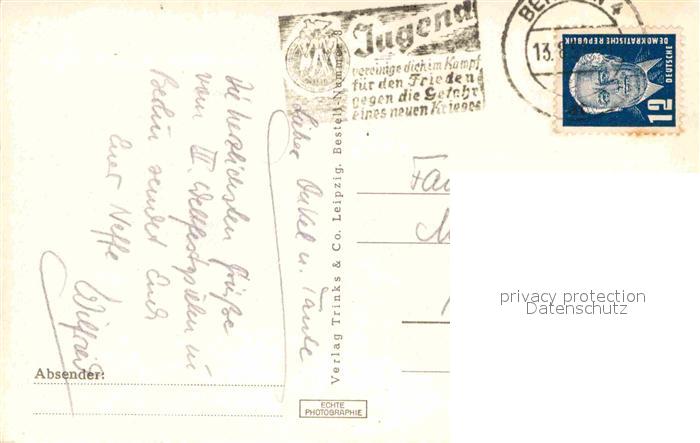 Jugend
vereinige dich im Kampf
für den Frieden
gegen die Gefahr
eines neuen Krieges
BERLIN 4
13.8
DEUTSCHE
DEMOKRATISCHE REPUBLIK
12
Lieber Onkel u. Tante
Die herzlichsten Grüße
vom III. Weltfestspielen in
Berlin sendet Euch
Euer Neffe
Wilfried
Verlag Trinks & Co. Leipzig. Bestell-Nummer 8
Fa
M
privacy protection
Datenschutz
Absender:
ECHTE
PHOTOGRAPHIE